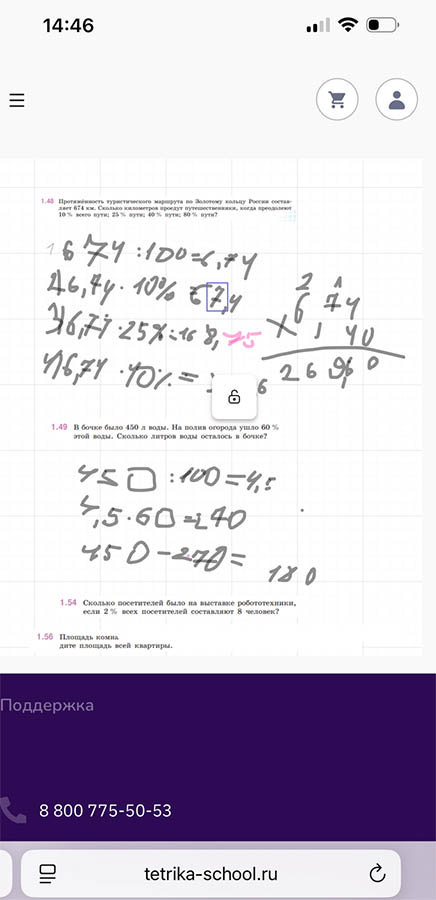 14:46
1.48 Протяжённость туристического маршрута по Золотому кольцу России состав-
ляет 674 км. Сколько километров проедут путешественники, когда преодолеют
10 % всего пути; 25 % пути; 40 % пути; 80 % пути?
1 674 : 100 = 6,74
2) 6,74 · 10% = 67,4
3) 6,74 · 25% = 168,
4) 6,74 · 40% =
2
6 74
× 1 40
26 960
1.49 В бочке было 450 л воды. На полив огорода ушло 60 %
этой воды. Сколько литров воды осталось в бочке?
450 : 100 = 4,5
4,5 · 60 = 270
450 - 270 =
180
1.54 Сколько посетителей было на выставке робототехники,
если 2 % всех посетителей составляют 8 человек?
1.56 Площадь комна
дите площадь всей квартиры.
Поддержка
8 800 775-50-53
tetrika-school.ru